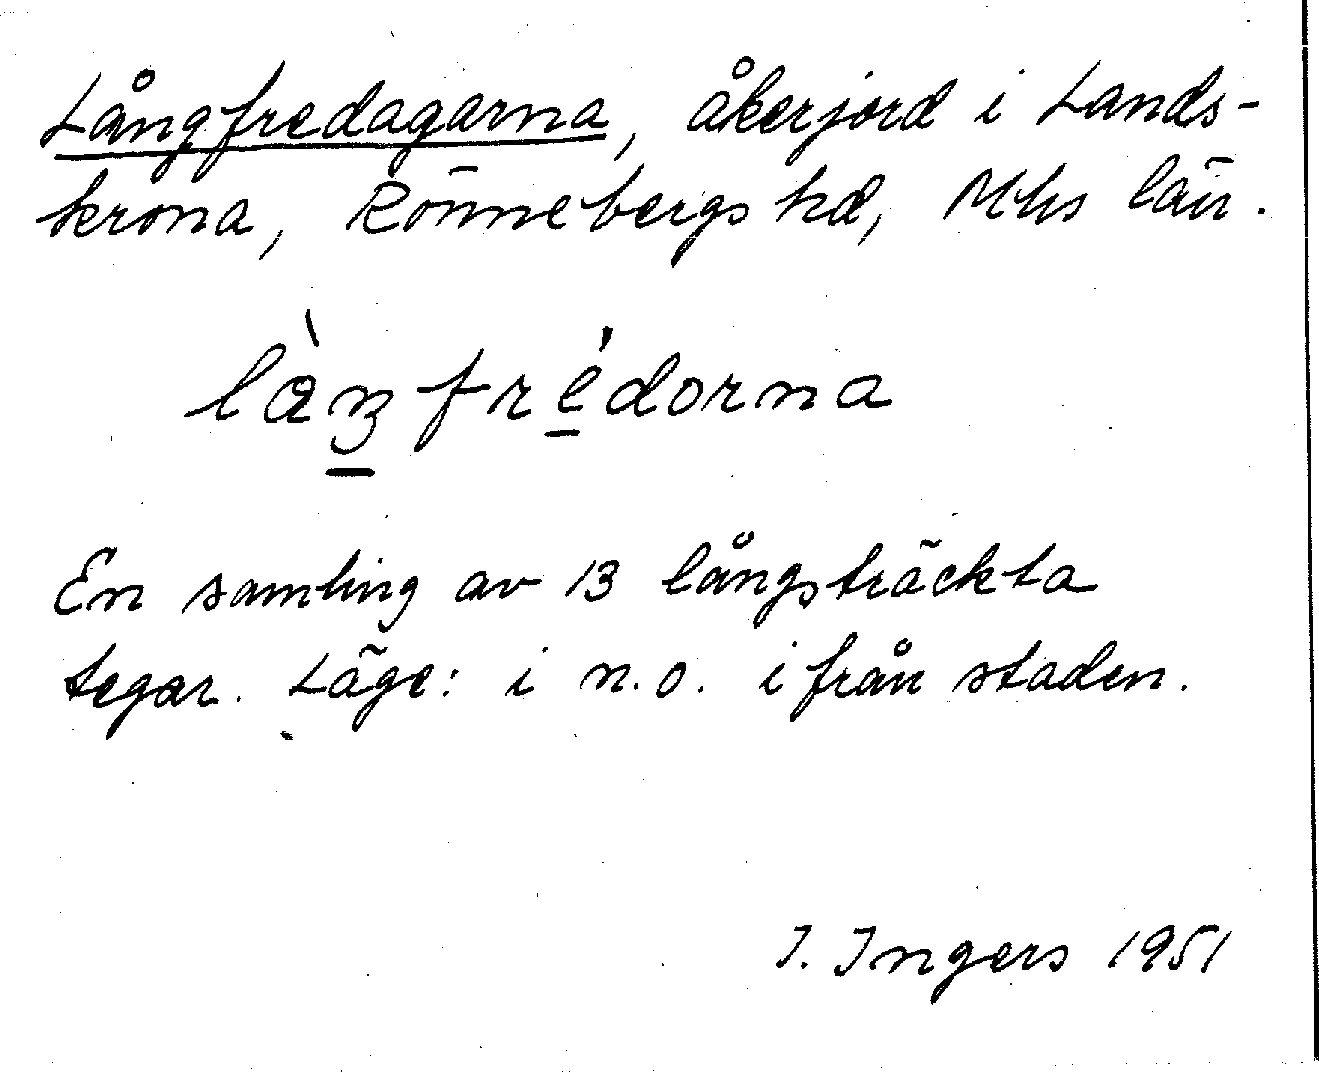 Långfredagarna, åkerjord i Lands-
krona, Rönnebergs hd, Mhs län.
làŋfrédorna
En samling av 13 långsträckta
tegar. Läge: i n.o. ifrån staden.
I. Ingers 1951